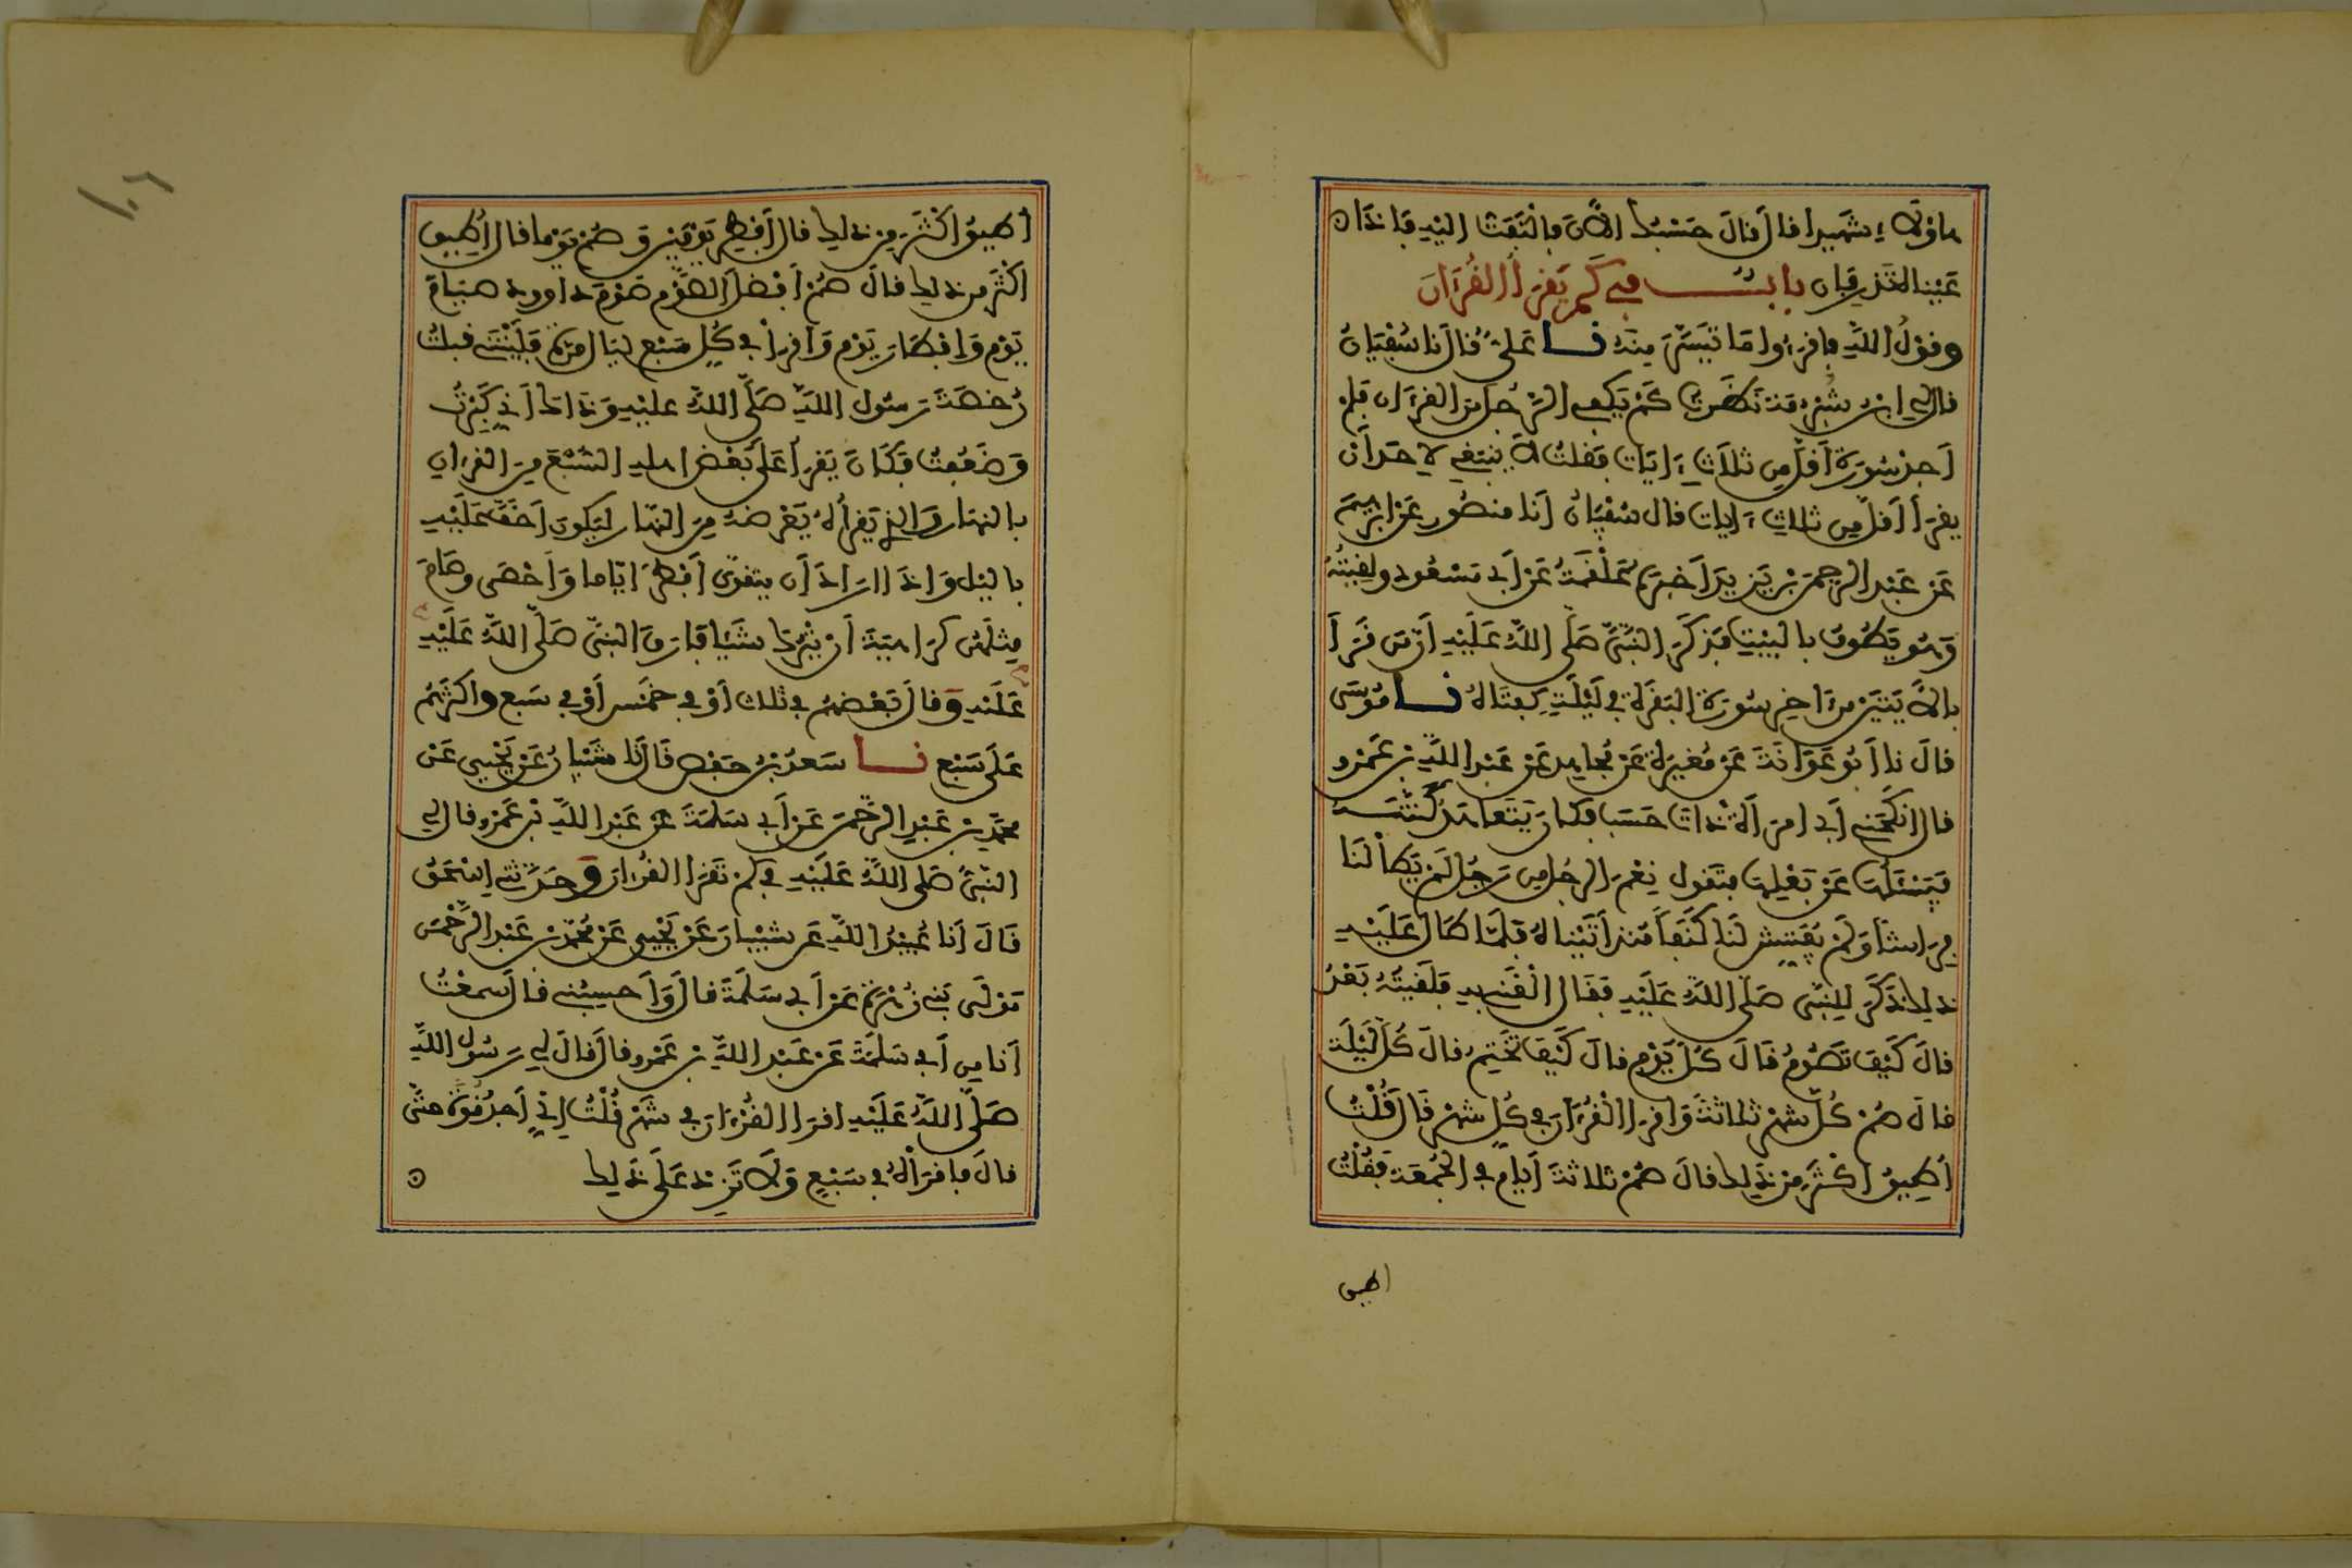 هاؤلاء شهيدا قال قال حَسْبُك الآنَ فالْتَفَتُّ اليْهِ فإذا
عَيْناه تَذْرِفان بابٌ في كَمْ يَقْرَأُ القُرْءَانَ
وقوْلُ اللهِ فاقْرَءُوا مَا تَيَسَّرَ مِنْهُ نا عَلِيٌّ قال نا سُفْيَانُ
قال لي ابنُ شُبْرُمَةَ نَظَرْتُ كَمْ يَكْفِي الرَّجُلَ مِنَ القرءان فلم
أجدْ سُورَةً أقلَّ مِن ثلاثِ ءَايَاتٍ فقلتُ لا يَنْبَغِي لأحَدٍ أنْ
يقرَأَ أقلَّ مِن ثلاثِ ءايات قال سُفْيَانُ أنا منصُورٌ عَنْ ابرهيمَ
عَنْ عَبْدِ الرحمنِ بْنِ يَزِيدَ أخبَرَهُ عَلْقَمَةُ عَنْ أبي مَسْعُودٍ ولقِيتُهُ
وَهُوَ يَطُوفُ بالبيْتِ فذَكَرَ النبيُّ صَلَّى اللهُ عَلَيْهِ أنّ مَن قَرَأَ
بالآيَتَيْنِ مِنَ اخِرِ سُورَةِ البَقَرَةِ في لَيْلَةٍ كفتَاهُ نا مُوسَى
قالَ نا أبُو عَوَانَةَ عَنْ مُغِيرَةَ عَنْ مُجاهِدٍ عَنْ عَبْدِ اللهِ بنِ عَمْرٍو
قال انكَحَنِي أبي امرَأةً ذاتَ حَسَبٍ فكان يَتَعاهَدُ كَنَّتَهُ
فيَسْئَلُهَا عَنْ بَعْلِهَا فتَقولُ نِعْمَ الرجُلُ مِن رَجُلٍ لَمْ يَطَأْ لنَا
فِرَاشًا وَلَمْ يُفَتِّشْ لنَا كَنَفًا مُنْذُ أتَيْنَاهُ فلَمَّا طَالَ عَلَيْهِ
ذلك ذَكَرَ لِلنبيِّ صَلَّى اللهُ عَلَيْهِ فقَالَ الْقَنِي بِهِ فلَقِيتُهُ بَعْدُ
قالَ كَيْفَ تَصُومُ قَالَ كُلَّ يَوْمٍ قالَ كَيْفَ تَخْتِمُ قالَ كُلَّ لَيْلَةٍ
قالَ صُمْ كُلَّ شهْرٍ ثلاثَةً وَاقرإ الْقُرْءَانَ في كُلِّ شهْرٍ قَالَ قُلْتُ
أُطِيقُ أكْثَرَ مِنْ ذَلِك قالَ صُمْ ثلاثةَ أيامٍ في الجُمُعَةِ فقُلْتُ
اطيق
أطيقُ أكْثَرَ مِنْ ذلك قال أفْطِرْ يَوْمَيْنِ وَصُمْ يَوْمًا قال أُطِيقُ
أكْثَرَ مِن ذلك قالَ صُمْ أفْضَلَ الصَّوْمِ صَوْمَ داوودَ صيَامَ
يَوْمٍ وَإفْطَارَ يَوْمٍ وَاقرأ في كُلِّ سَبْعِ ليَالٍ مَرّةً فلَيْتَنِي قبِلْتُ
رُخصَةَ رَسُولِ اللهِ صَلَّى اللهُ عليْهِ وَذَاكَ أني كَبِرْتُ
وَضَعُفْتُ فكَانَ يَقرأُ عَلَى بَعْضِ اهلِهِ السُّبْعَ مِنَ القرءانِ
بالنهَارِ وَالذي يَقْرأُهُ يَعْرِضُهُ مِنَ النهَارِ ليَكونَ أخَفَّ عَلَيْهِ
باليْلِ وَإذَا ارَادَ أن يتقوَّى أفْطَرَ أيّامًا وَأحْصَى وصَامَ
مِثلَهُنَّ كرَاهيَةَ أن يَتْرُكَ شَيْئًا فارَقَ النبيَّ صَلَّى اللهُ عَلَيْهِ
عَلَيْهِ وَقالَ بَعْضُهُمْ في ثلاث أوْ في خمْسٍ أوْ في سَبعٍ واكثَرُهُمْ
عَلَى سَبْعٍ نا سَعدُ بْنُ حَفْصٍ قَالَ نا شَيْبانُ عَنْ يَحْيى عَنْ
محمَّدِ بنِ عَبْدِ الرَّحْمنِ عَنْ أبي سَلمَةَ عَنْ عَبْدِ اللهِ بْنِ عَمْرٍو قال لي
النبيُّ صَلَّى اللهُ عَلَيْهِ في كم تَقرَأُ القُرْءانَ وَحَدَّثني إسْحَقُ
قَالَ أنا عُبَيْدُ اللهِ عَن شَيْبَانَ عَنْ يَحْيى عَنْ مُحَمَّدِ بنِ عَبْدِ الرَّحْمَنِ
مَوْلَى بَنِي زُهْرَةَ عَنْ أبي سَلَمَةَ قالَ وَأحسِبُني قالَ سَمِعْتُ
أنا مِن أبي سَلمَةَ عَنْ عَبْدِ اللهِ بنِ عَمْرٍو قالَ قالَ لي رَسُولُ اللهِ
صَلَّى اللهُ عَلَيْهِ اقرَإ القُرْءَانَ في شَهْرٍ قُلْتُ إنِّي أجدُ قُوَّةً حتَّى
قالَ فاقرَأْهُ في سَبْعٍ وَلا تَزِدْ عَلَى ذَلِك